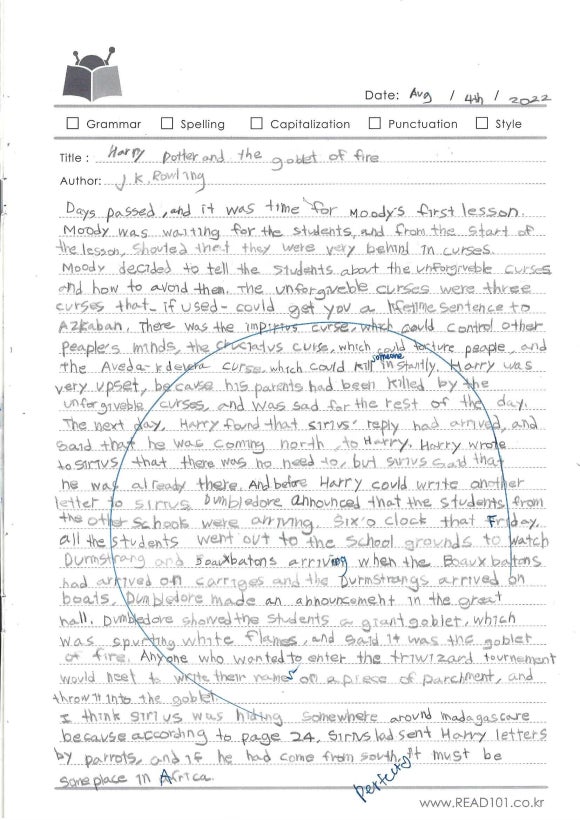 Date: Aug / 4th / 2022
Grammar Spelling Capitalization Punctuation Style
Title : Harry Potter and the goblet of fire
Author: J.K. Rowling
Days passed, and it was time for Moody's first lesson.
Moody was waiting for the students, and from the start of
the lesson, shouted that they were very behind in curses.
Moody decided to tell the students about the unforgiveble curses
and how to avoid them. The unforgiveble curses were three
curses that - if used - could get you a lifetime sentence to
Azkaban. There was the impirius curse, which could control other
people's minds, the cruciatus curse, which could torture people, and
the Aveda-kdevera curse, which could kill someone instantly. Harry was
very upset, because his parents had been killed by the
unforgiveble curses, and was sad for the rest of the day.
The next day, Harry found that sirius' reply had arrived, and
said that he was coming north, to Harry. Harry wrote
to sirius that there was no need to, but sirius said that
he was already there. And before Harry could write another
letter to sirius Dumbledore announced that the students from
the other schools were arriving. Six'o clock that Friday.
all the students went out to the school grounds to watch
Durmstrang and Boauxbatons arriving when the Boauxbatons
had arrived on carriges and the Durmstrangs arrived on
boats. Dumbledore made an announcement in the great
hall. Dumbledore showed the students a giant goblet, which
was spurting white flames, and said it was the goblet
of fire. Anyone who wanted to enter the triwizard tournement
would neet to write their name on a piece of parchment, and
throw it into the goblet
I think sirius was hiding somewhere around madagascare
because according to page 24, Sirius had sent Harry letters
by parrots, and if he had come from south, it must be
someplace in Africa.
Perfect!
www.READ101.co.kr